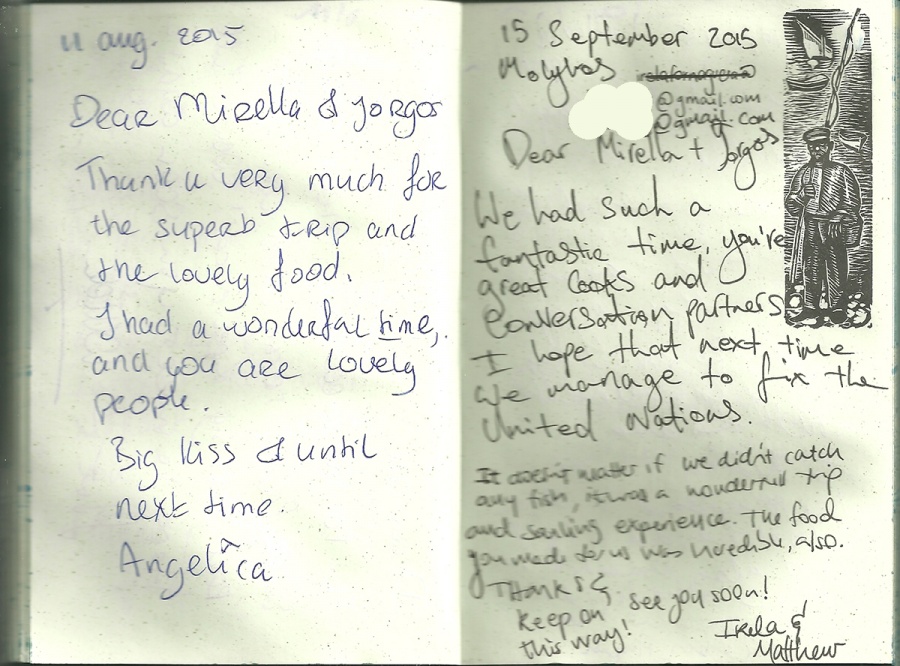 11 aug. 2015
Dear Mirella & Jorgos
Thank u very much for
the superb trip and
the lovely food.
I had a wonderful time,
and you are lovely
people.
Big kiss & until
next time.
Angelica
15 September 2015
Molybos
@gmail.com
@gmail.com
Dear Mirella + Jorgos
We had such a
fantastic time, you're
great cooks and
conversation partners
I hope that next time
we manage to fix the
United Nations.
It doesn't matter if we didn't catch
any fish, it was a wonderful trip
and sailing experience. The food
you made for us was incredible, also.
THANKS &
keep on see you soon!
this way!
Irela &
Matthew